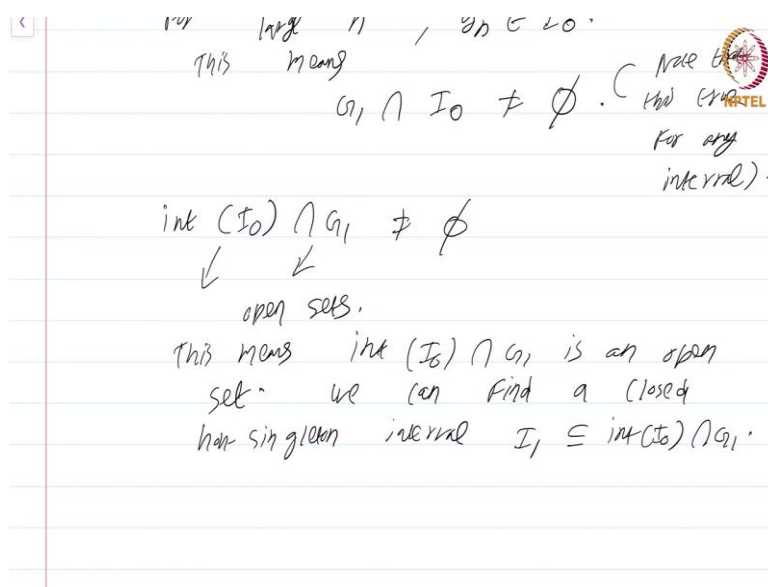 For large n , yn ∈ I0.
This means
G1 ∩ I0 ≠ ∅. ( Note that
this true
For any
interval).
NPTEL
int (I0) ∩ G1 ≠ ∅
open sets.
This means int (I0) ∩ G1 is an open
set. we can find a closed
non-singleton interval I1 ⊆ int(I0) ∩ G1.